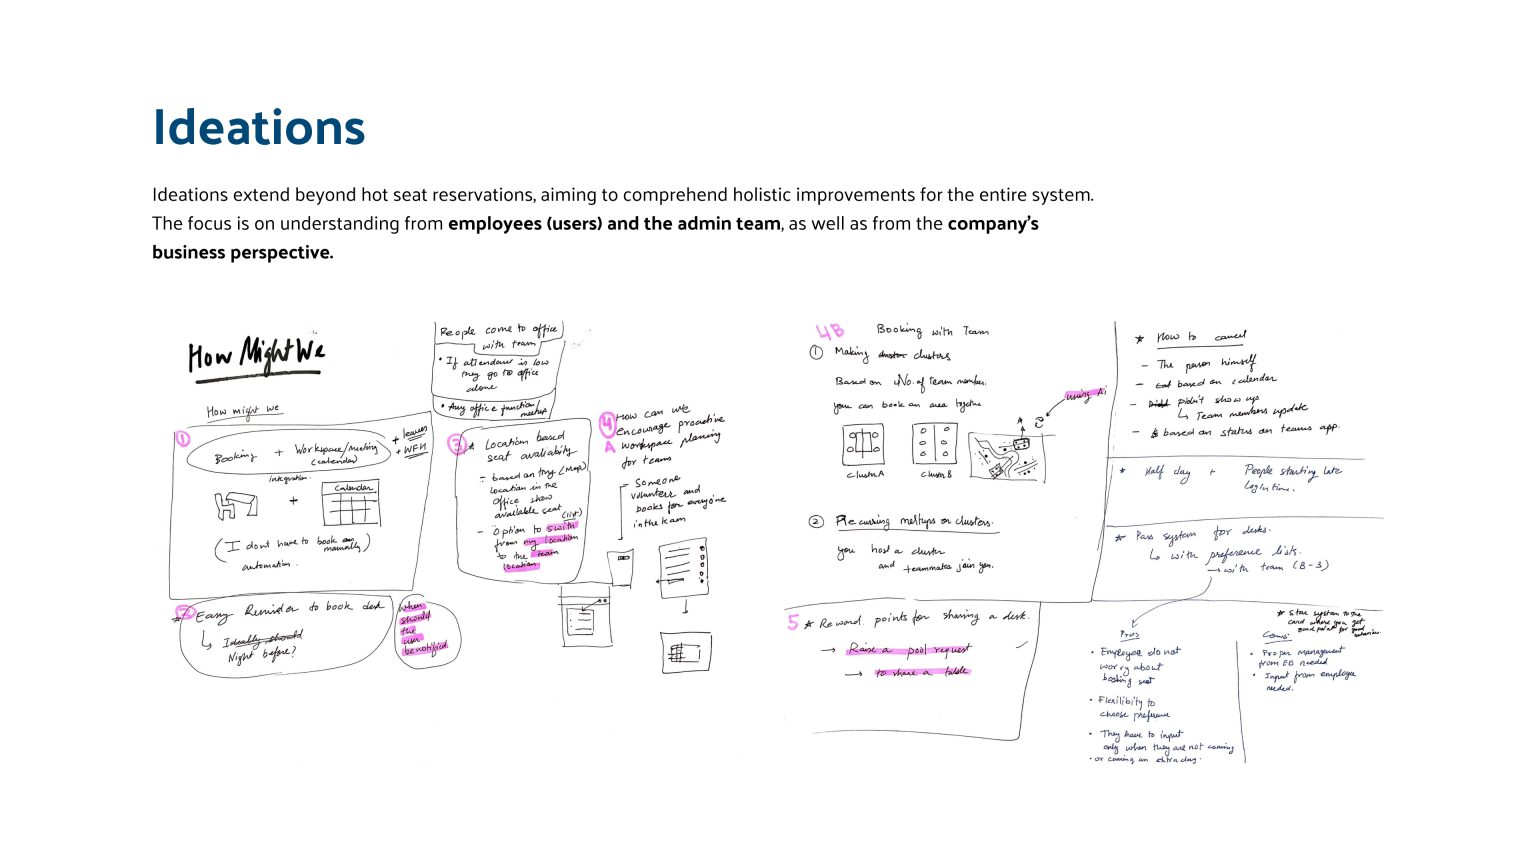 Ideations
Ideations extend beyond hot seat reservations, aiming to comprehend holistic improvements for the entire system.
The focus is on understanding from employees (users) and the admin team, as well as from the company's
business perspective.
How Might We
How might we
1
Booking + Workspace/meeting
(calendar)
integration
+ leaves
+ WFH
+
Calendar
(I dont have to book manually)
automation.
2
Easy Reminder to book desk
Ideally should
Night before?
when
should
the
user
be notified
People come to office
with team
• If attendance is low
they go to office
alone
• Any office function/
meetup
3
Location based
seat availability
- based on my (Map)
location in the
office show
available seat
(list)
- Option to swith
from my location
to the team
location
4
A
How can we
encourage proactive
workspace planing
for teams
- Someone
volunteers and
books for everyone
in the team
4B
Booking with Team
① Making clusters
Based on No. of team member.
you can book an area togethe
using Ai
cluster A
cluster B
② Recurring meetups or clusters.
you host a cluster
and teammates join you.
5
Reward points for sharing a desk.
→ Raise a pool request
→ to share a table
How to cancel
- The person himself
- based on calendar
- Didn't show ups
Team members update
- based on status on teams app.
Half day + People starting late
login time.
Pass system for desks.
with preference lists.
→ with team (B-3)
Star system to the
card where you get
good point for good
behavior
Pros
• Employee do not
worry about
booking seat
• Flexilibity to
choose preference
• They have to input
only when they are not coming
• or coming an extra day.
Cons
• Proper management
from ED needed
• Input from employee
needed.